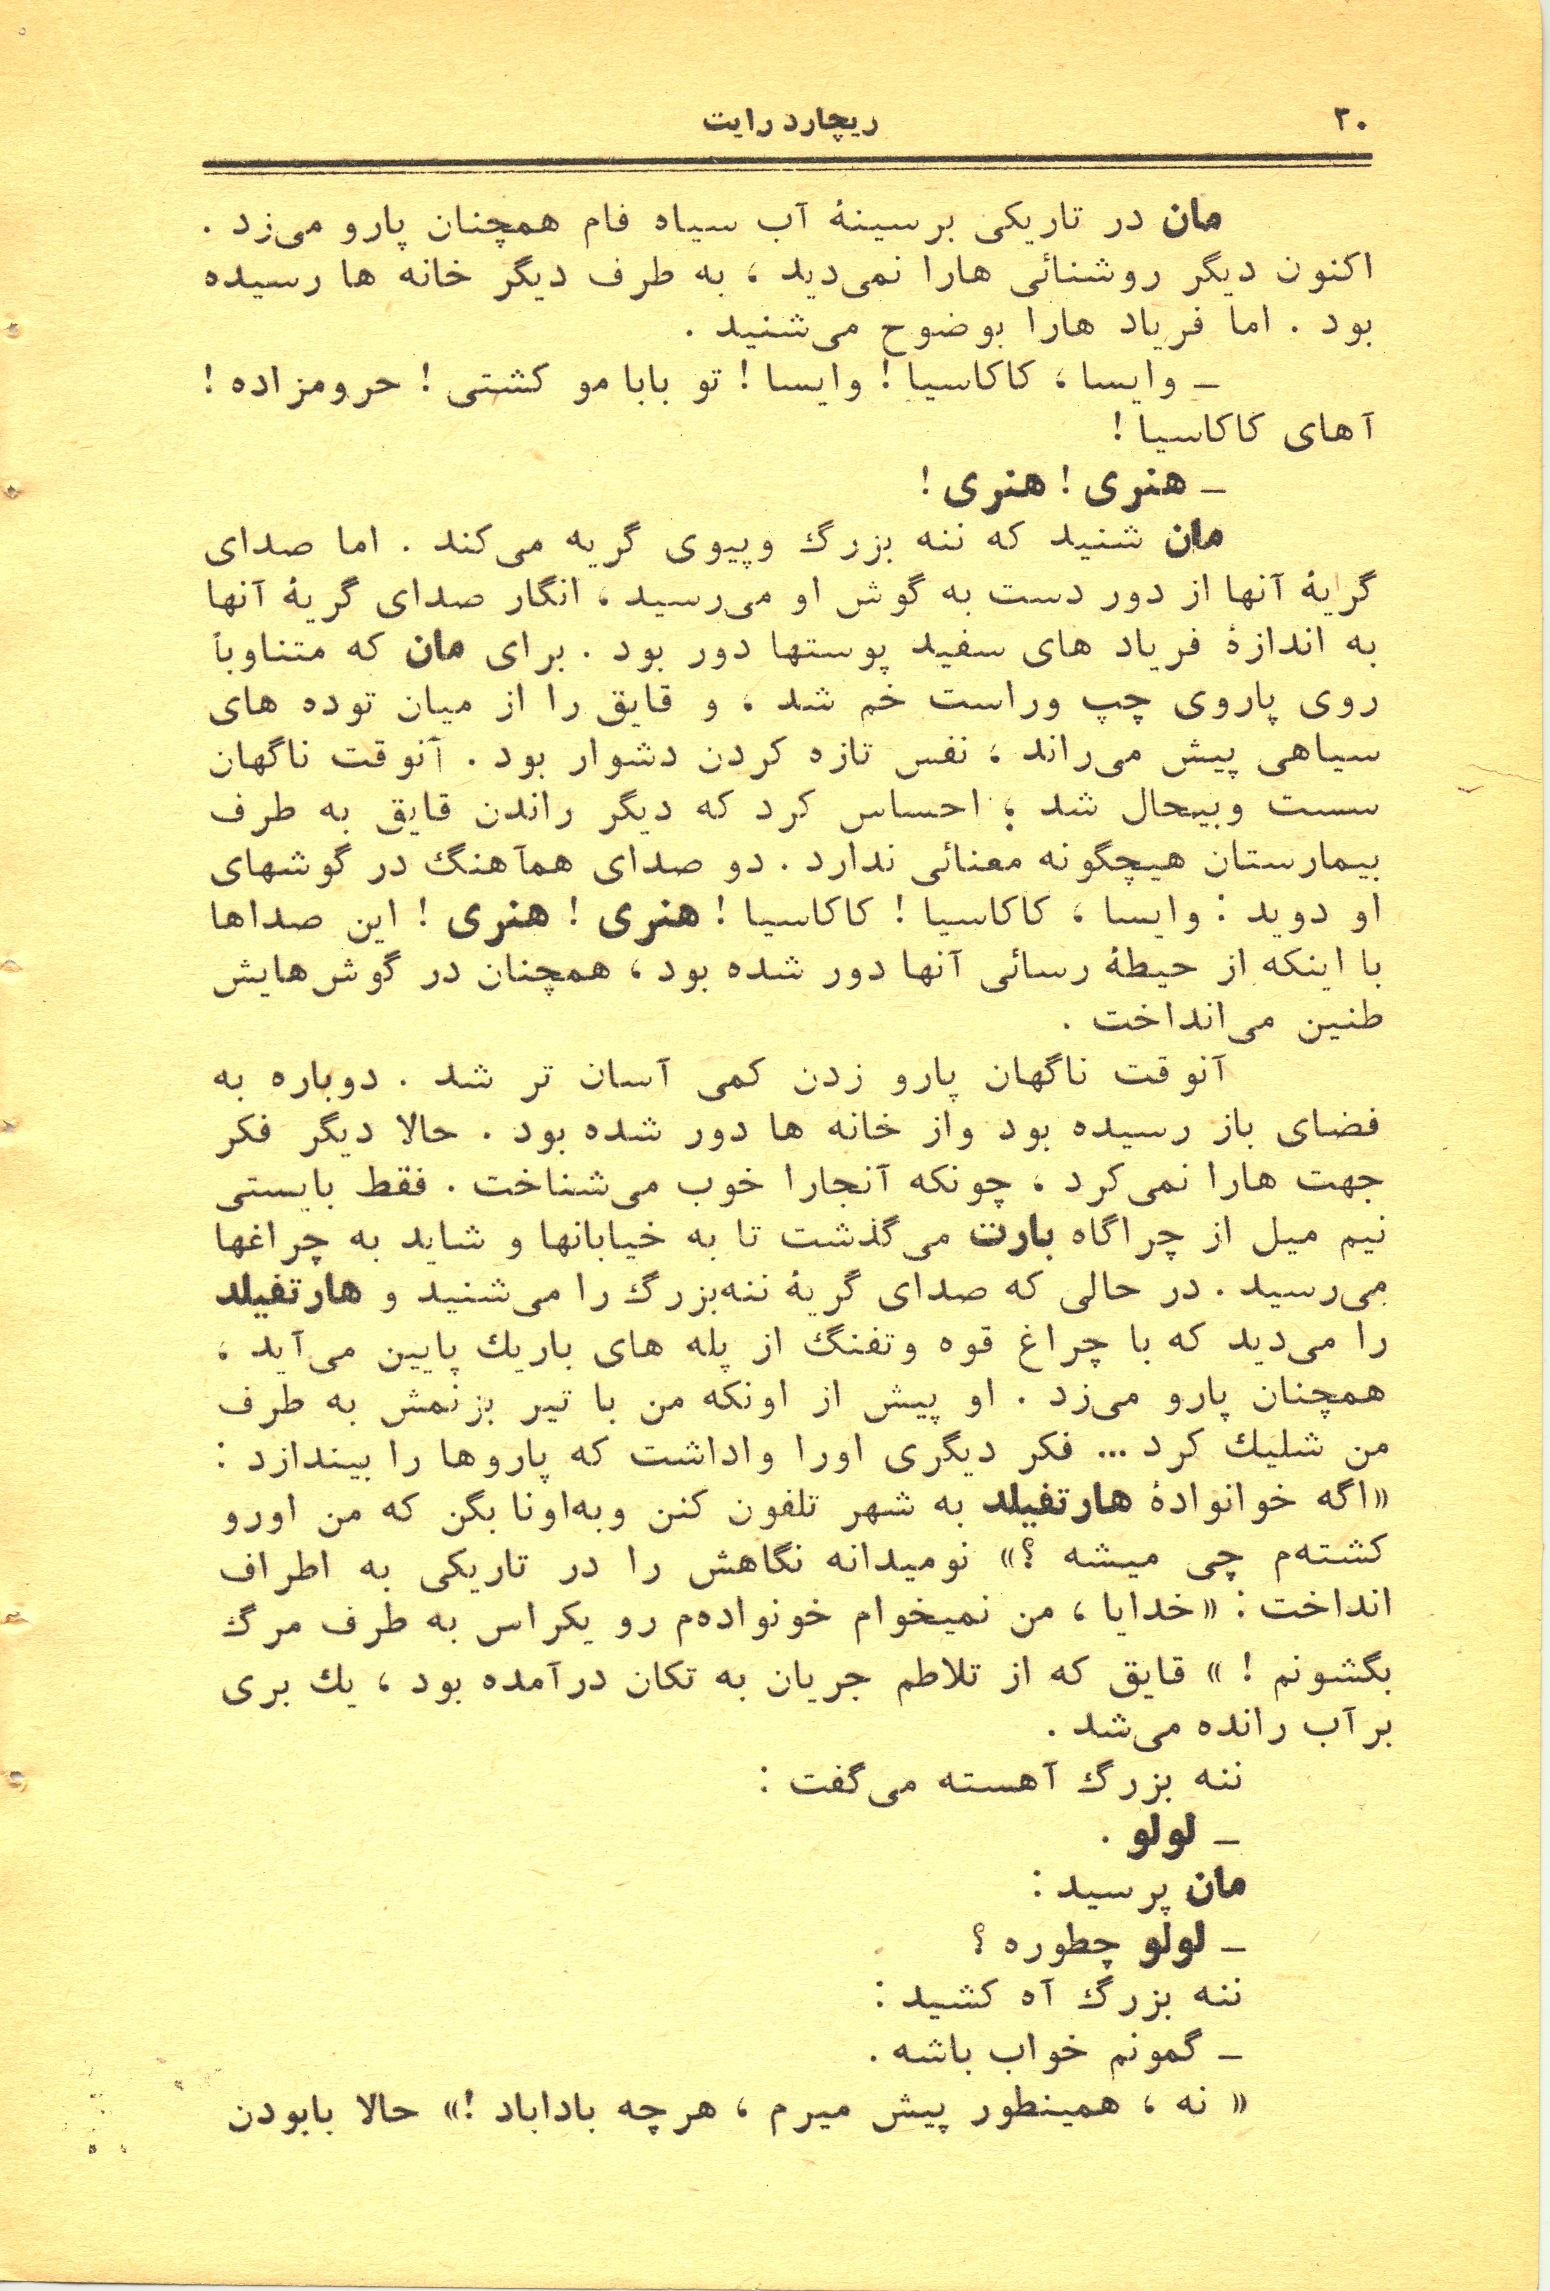 ۳۰
ریچارد رایت
مان در تاریکی بر سینهٔ آب سیاه فام همچنان پارو می‌زد .
اکنون دیگر روشنائی هارا نمی‌دید ، به طرف دیگر خانه ها رسیده
بود . اما فریاد هارا بوضوح می‌شنید .
ـ وایسا ، کاکاسیا ! وایسا ! تو بابا مو کشتی ! حرومزاده !
آهای کاکاسیا !
ـ هنری ! هنری !
مان شنید که ننه بزرگ وپیوی گریه می‌کند . اما صدای
گریهٔ آنها از دور دست به گوش او می‌رسید ، انگار صدای گریهٔ آنها
به اندازهٔ فریاد های سفید پوستها دور بود . برای مان که متناوباً
روی پاروی چپ وراست خم شد ، و قایق را از میان توده های
سیاهی پیش می‌راند ، نفس تازه کردن دشوار بود . آنوقت ناگهان
سست وبیحال شد ؛ احساس کرد که دیگر راندن قایق به طرف
بیمارستان هیچگونه معنائی ندارد . دو صدای همآهنگ در گوشهای
او دوید : وایسا ، کاکاسیا ! کاکاسیا ! هنری ! هنری ! این صداها
با اینکه از حیطهٔ رسائی آنها دور شده بود ، همچنان در گوش‌هایش
طنین می‌انداخت .
آنوقت ناگهان پارو زدن کمی آسان تر شد . دوباره به
فضای باز رسیده بود واز خانه ها دور شده بود . حالا دیگر فکر
جهت هارا نمی‌کرد ، چونکه آنجارا خوب می‌شناخت . فقط بایستی
نیم میل از چراگاه بارت می‌گذشت تا به خیابانها و شاید به چراغها
می‌رسید . در حالی که صدای گریهٔ ننه‌بزرگ را می‌شنید و هارتفیلد
را می‌دید که با چراغ قوه وتفنگ از پله های باریك پایین می‌آید ،
همچنان پارو می‌زد . او پیش از اونکه من با تیر بزنمش به طرف
من شلیك کرد ... فکر دیگری اورا واداشت که پاروها را بیندازد :
«اگه خوانوادهٔ هارتفیلد به شهر تلفون کنن وبه‌اونا بگن که من اورو
کشته‌م چی میشه ؟» نومیدانه نگاهش را در تاریکی به اطراف
انداخت : «خدایا ، من نمیخوام خونواده‌م رو یکراس به طرف مرگ
بگشونم ! » قایق که از تلاطم جریان به تکان درآمده بود ، یك بری
بر آب رانده می‌شد .
ننه بزرگ آهسته می‌گفت :
ـ لولو .
مان پرسید :
ـ لولو چطوره ؟
ننه بزرگ آه کشید :
ـ گمونم خواب باشه .
« نه ، همینطور پیش میرم ، هرچه باداباد !» حالا بابودن